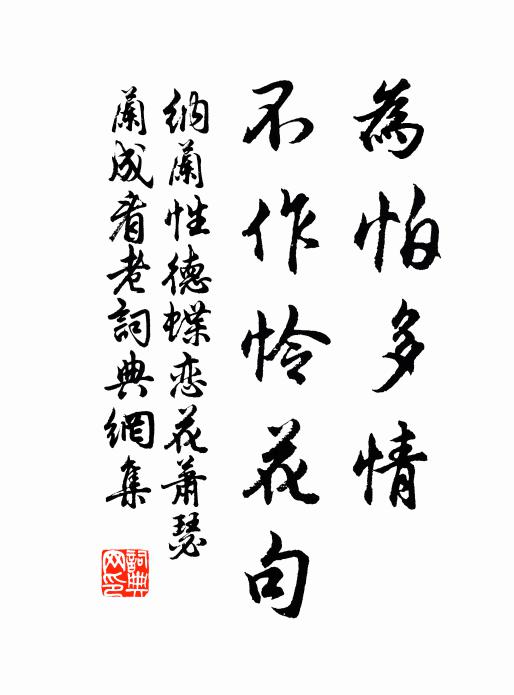 為怕多情
不作怜花句
納蘭性德蝶恋花蕭瑟
蘭成看老詞典網集
詞典网印